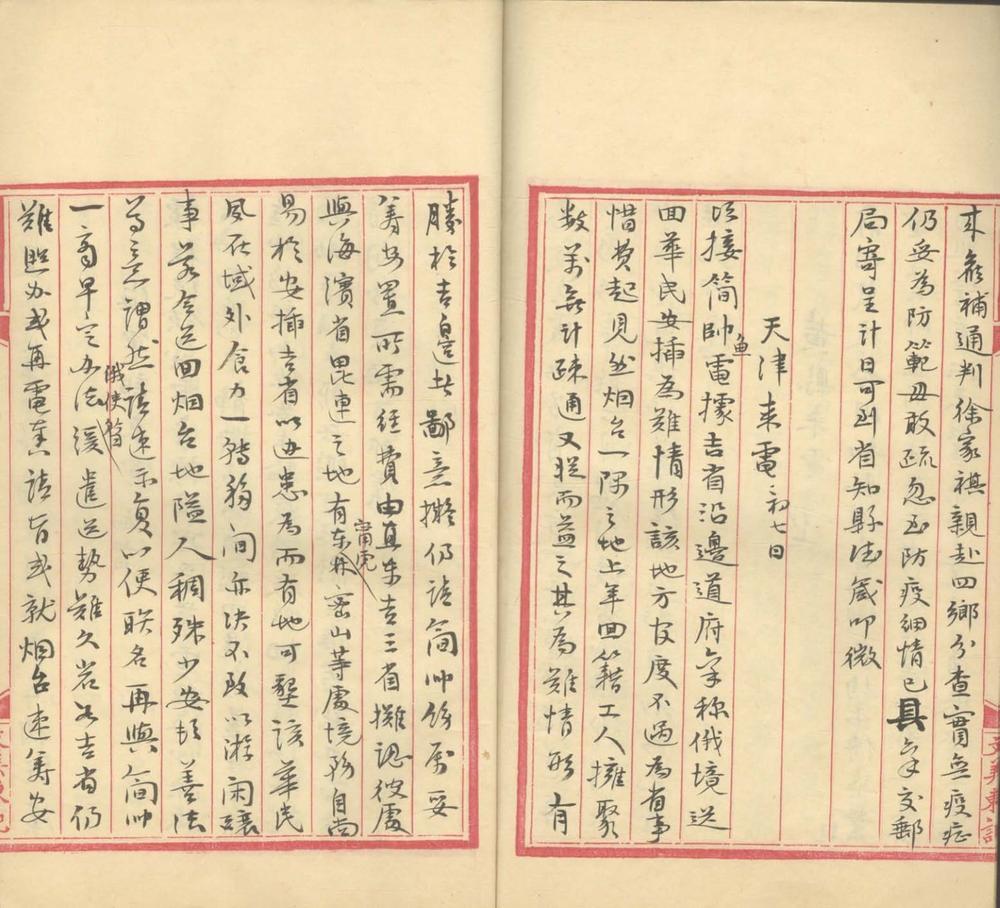 來飭補通判徐家祺親赴四鄉分查實無疫症
仍妥為防範毋敢疏忽至防疫細情已具稟交郵
局寄呈計日可到省知縣德歲叩微
天津來電 初七日
頃接簡帥魚電據吉省沿邊道府稟稱俄境送
回華民安插為難情形該地方官度不過為省事
惜費起見然烟台一隅之地上年回籍工人擁聚
數萬無計疎通又從而益之其為難情形有
勝於吉邊者鄙意擬仍請簡帥飭屬妥
籌安置所需經費由直東吉三省攤認彼處
與海濱省毘連之地有東林甯虎密山等處境務自尚
易於安插吉省以毋患為而有地可墾該華民
風在域外食力一轉移間亦決不致以游閑釀
事若令送回烟台地隘人稠殊少安頓善法
尊意謂然請速示复以便联名再與簡帥
一商早定办法緩遣送勢難久若如吉省仍
俄使箝
難照办或再電奏請旨或就烟台速籌安